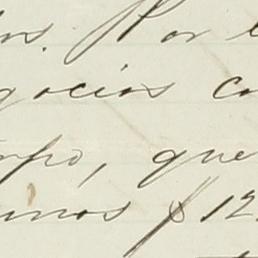 os. Por
gocios co
mpo, que
inos $12